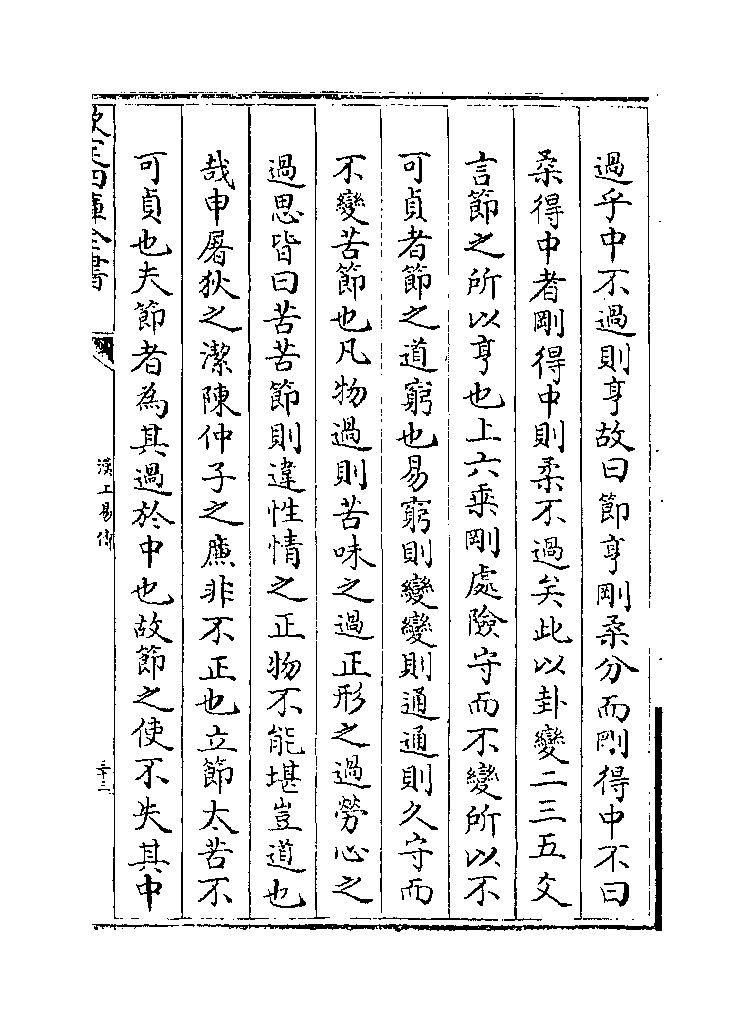 過乎中不過則亨故曰節亨剛柔分而剛得中不曰
柔得中者剛得中則柔不過矣此以卦變二三五爻
言節之所以亨也上六乘剛處險守而不變所以不
可貞者節之道窮也易窮則變變則通通則久守而
不變苦節也凡物過則苦味之過正形之過勞心之
過思皆曰苦苦節則違性情之正物不能堪豈道也
哉申屠狄之潔陳仲子之廉非不正也立節太苦不
可貞也夫節者為其過於中也故節之使不失其中
欽定四庫全書
漢上易傳
三十三